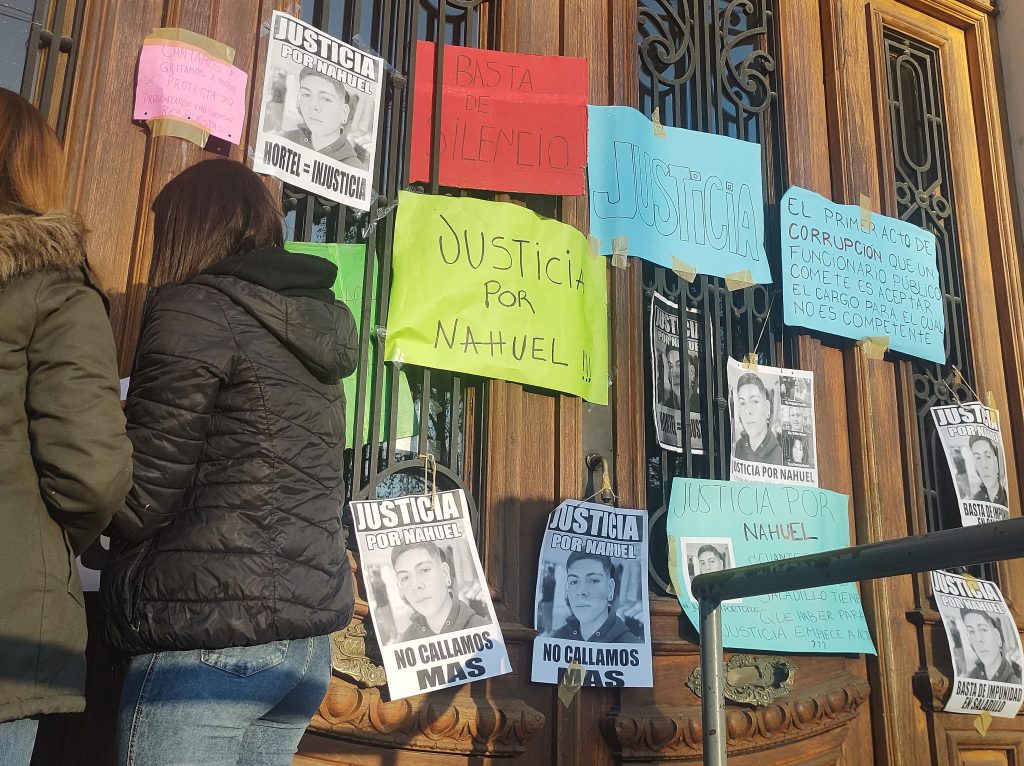 CANTAMOS y
GRITAMOS A MODO
DE PROTESTA XO
RESPUESTA
JUSTICIA
POR NAHUEL
HORTEL = INJUSTICIA
BASTA
DE
SILENCIO
JUSTICIA
POR
NAHUEL !!!
JUSTICIA
EL PRIMER ACTO DE
CORRUPCIÓN QUE UN
FUNCIONARIO PÚBLICO
COMETE ES ACEPTAR
EL CARGO PARA EL CUAL
NO ES COMPETENTE
JUSTICIA
JUSTICIA
POR NAHUEL
JUSTICIA
POR NAHUEL
BASTA DE IMPUNIDAD
EN SALADILLO
JUSTICIA
POR NAHUEL
NO CALLAMOS
MAS
JUSTICIA
POR NAHUEL
NO CALLAMOS
MAS
JUSTICIA POR
NAHUEL
SALADILLO TIENE
QUE HABER PARA
JUSTICIA EMPIECE A
???
JUSTICIA
POR NAHUEL
BASTA DE IMPUNIDAD
EN SALADILLO